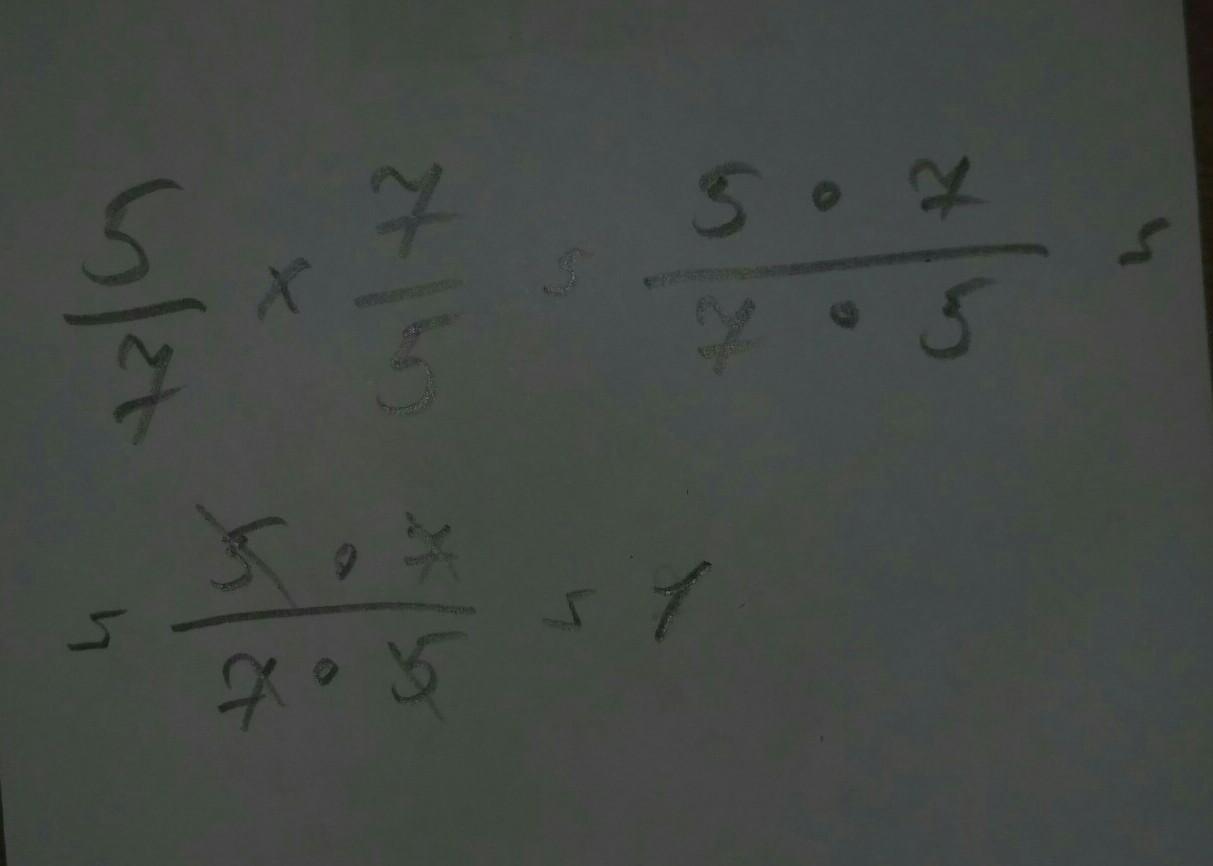 5/7 x 7/5 = 5 · 7 / 7 · 5 =
= 5 · 7 / 7 · 5 = 1